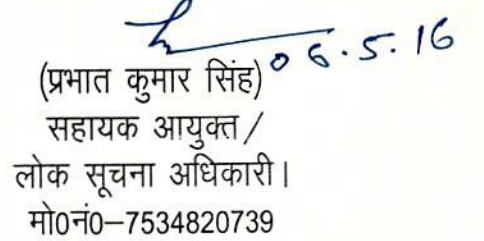 06.5.16
(प्रभात कुमार सिंह)
सहायक आयुक्त /
लोक सूचना अधिकारी।
मो0नं0–7534820739